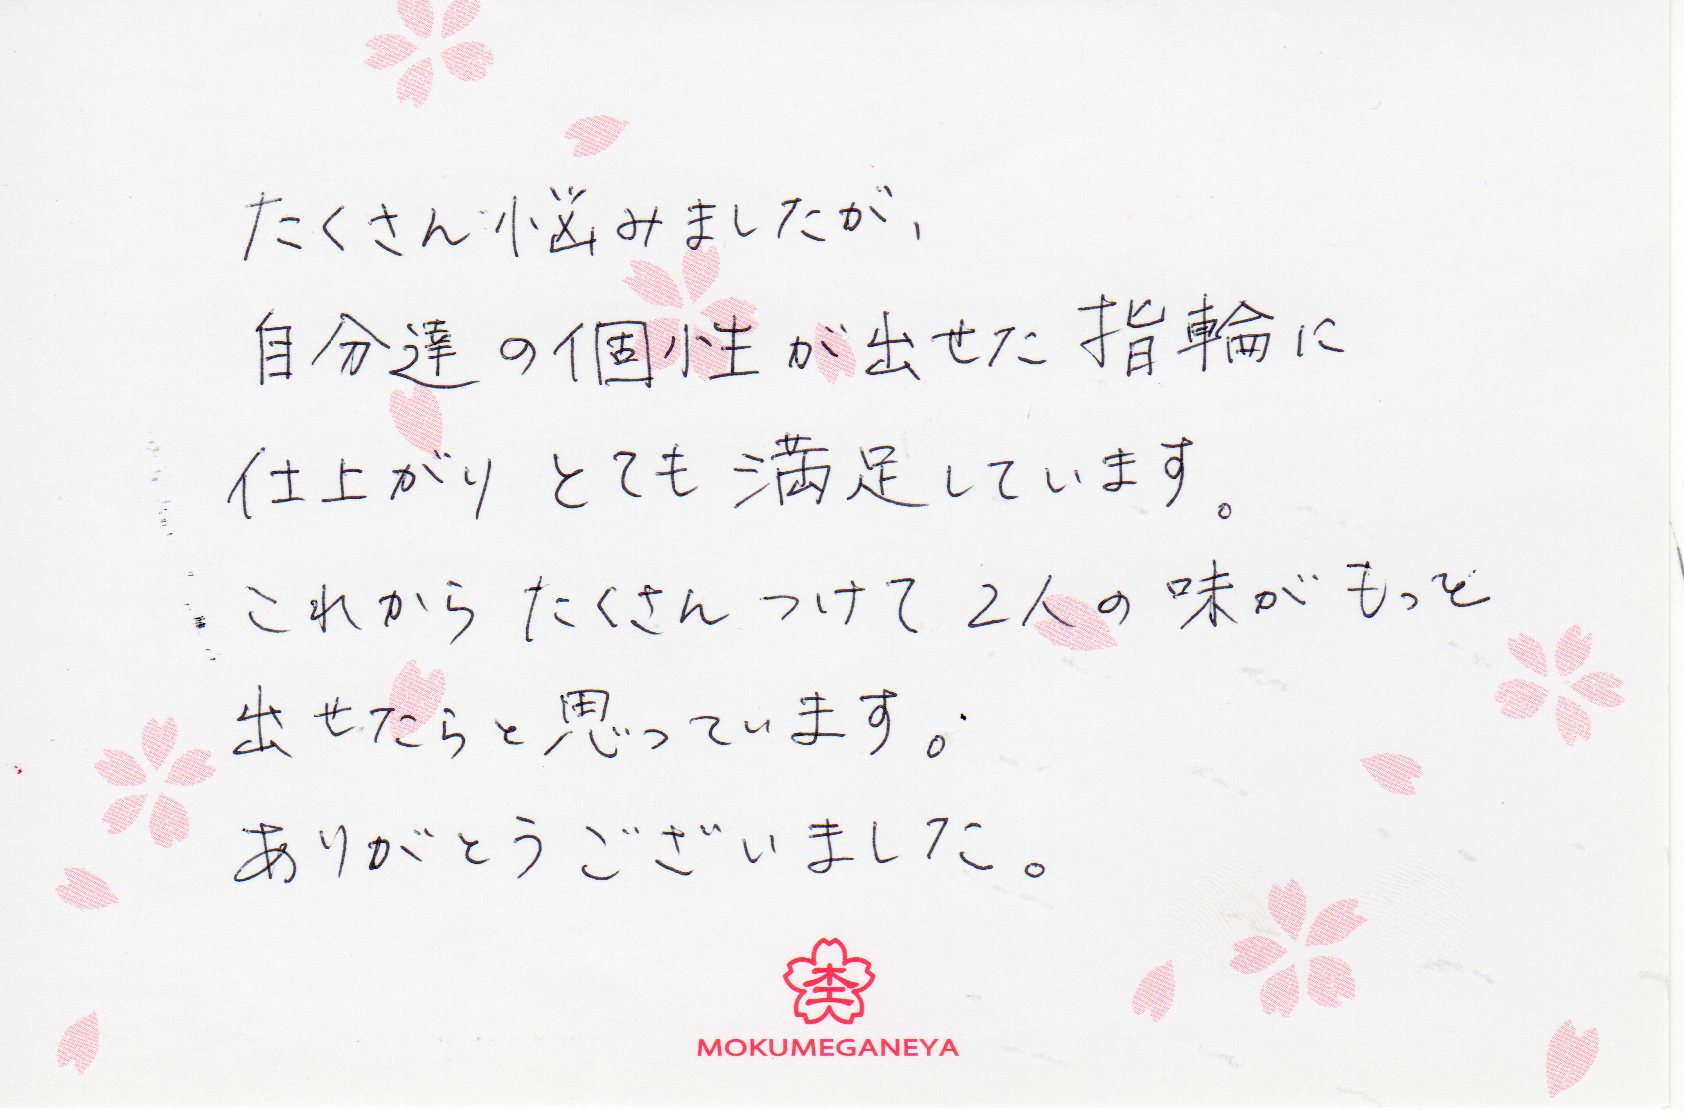 たくさん悩みましたが、
自分達の個性が出せた指輪に
仕上がりとても満足しています。
これからたくさんつけて2人の味がもっと
出せたらと思っています。
ありがとうございました。
杢
MOKUMEGANEYA